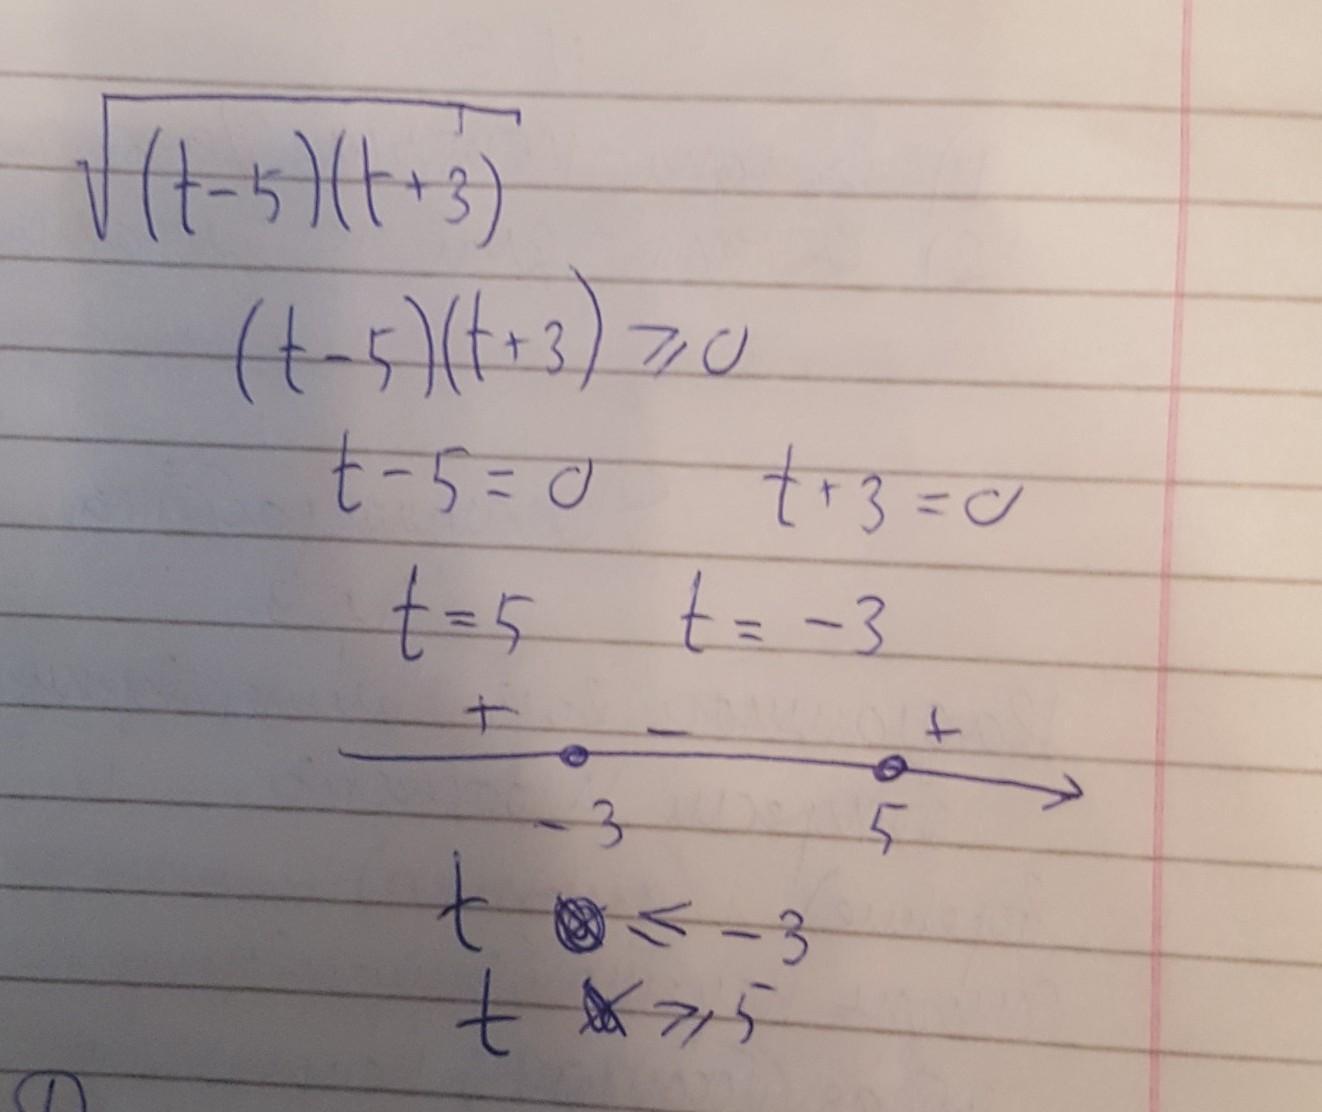 √(t-5)(t+3)
(t-5)(t+3) ⩾ 0
t-5=0 t+3=0
t=5 t=-3
+ - +
-3 5
t ⩽ -3
t ⩾ 5